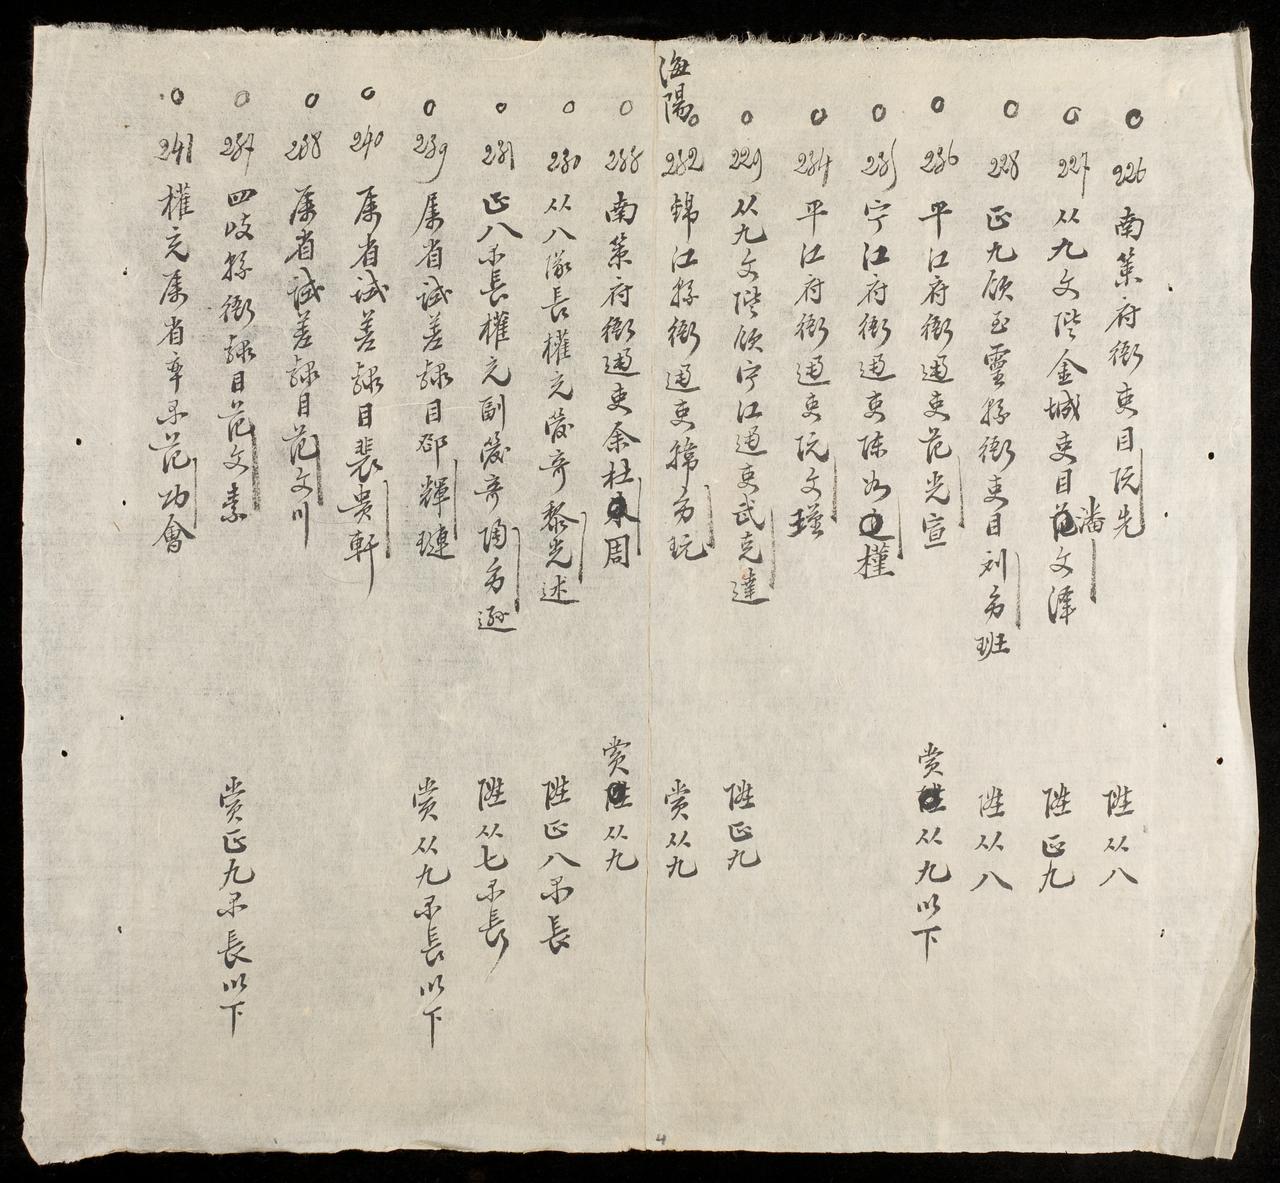 海陽
226 南策府衙吏目阮先 陞从八
227 从九文階金城吏目潘文澤 陞正九
228 正九領至靈縣衙吏目刘芳班 陞从八
236 平江府衙通吏范光宣 賞从九以下
235 宁江府衙通吏陈如權
234 平江府衙通吏阮文瑾
229 从九文階領宁江通吏武克達 陞正九
232 錦江縣衙通吏 芳玩 賞从九
233 南策府衙通吏余杜周 賞从九
230 从八隊長權充 奇黎光述 陞正八某長
231 正八某長權充副 奇陶芳遜 陞从七某長
239 属省試差隸目鄧輝璉 賞从九某長以下
240 属省試差隸目裴贵軒
238 属省試差隸目范文川
237 四岐縣衙隸目范文素 賞正九某長以下
241 權充属省率某范功會
4